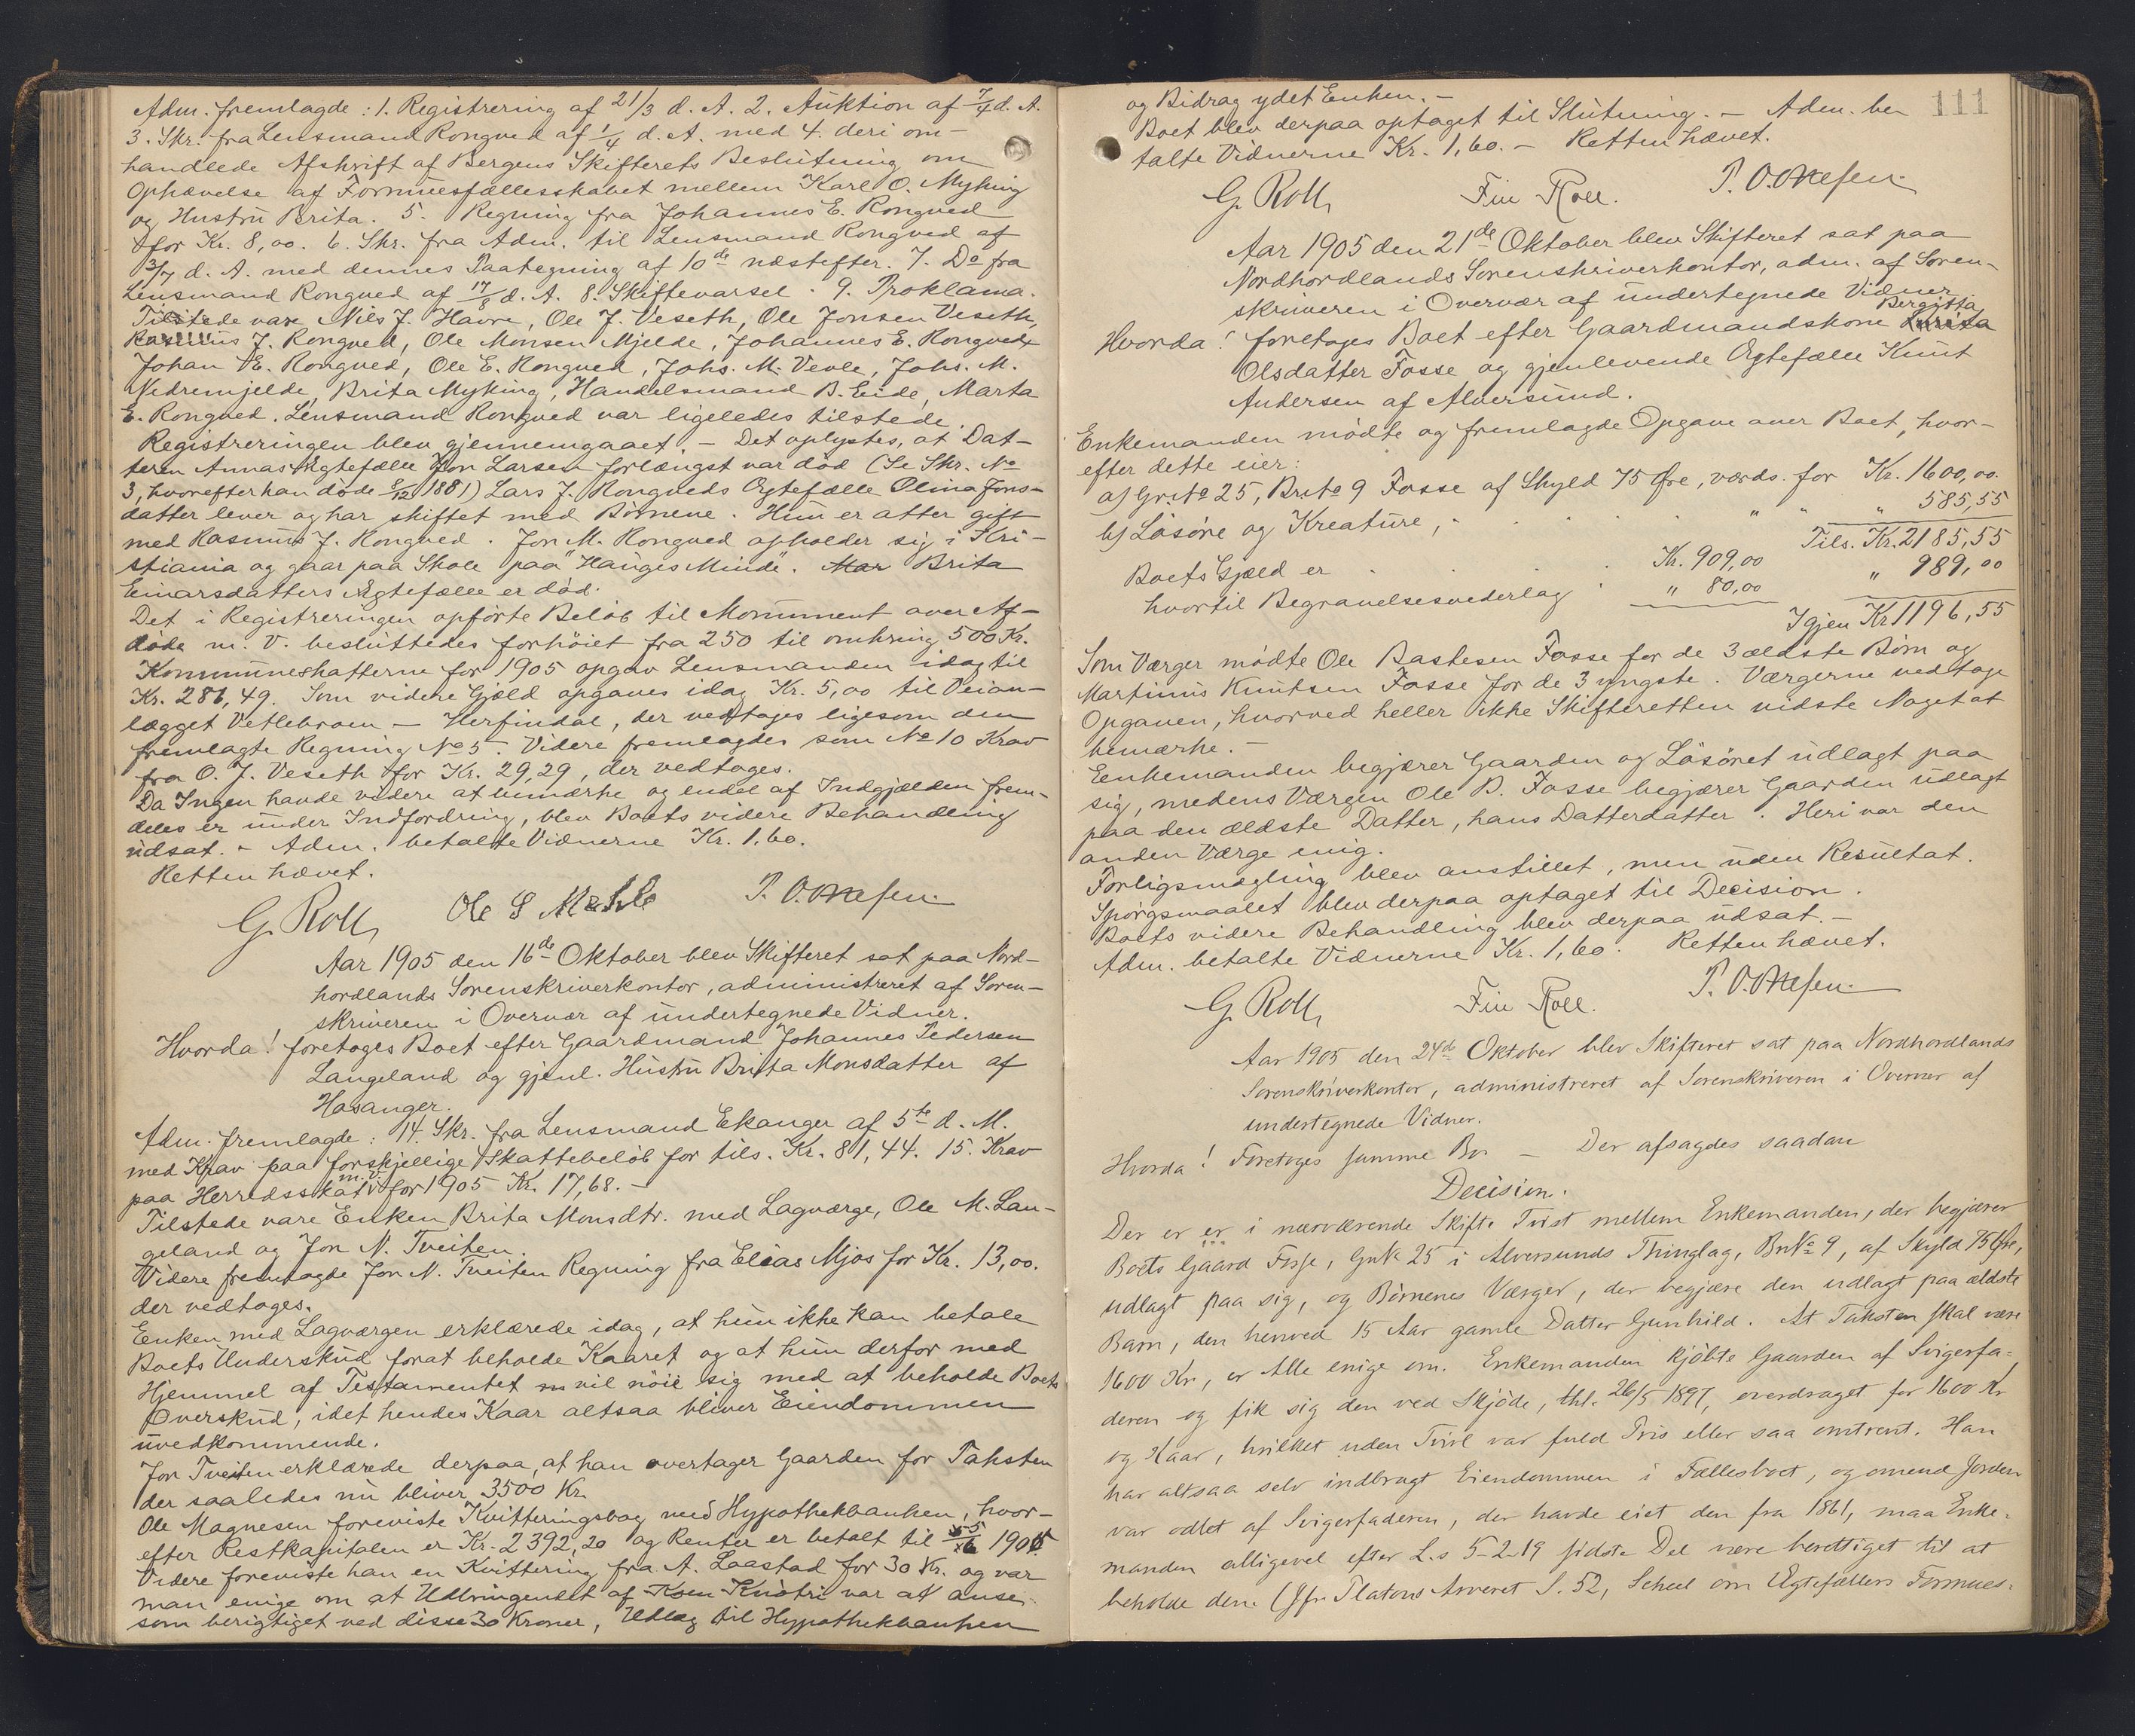 Adm. fremlagde: 1. Registrering af 21/3 d. A. 2. Auktion af 7/4 d. A.
3. Skr. fra Lensmand Rongved af 1/4 d. A. med 4. deri om-
handlede Afskrift af Bergens Skifterets Beslutning om
Ophævelse af Formuesfællesskabet mellem Karl O. Myking
og Hustru Brita. 5. Regning fra Johannes E. Rongved
for Kr. 8,00. 6. Skr. fra Adm. til Lensmand Rongved af
3/7 d. A. med dennes Paategning af 10de næstefter. 7. Do fra
Lensmand Rongved af 17/8 d. A. 8. Skiftevarsel. 9. Proklama.
Tilstede vare Nils J. Havre, Ole J. Veseth, Ole Jonsen Veseth,
Rasmus J. Rongved, Ole Monsen Mjelde, Johannes E. Rongved,
Johan E. Rongved, Ole E. Rongved, Johs. M. Vevle, Johs. M.
Nedremjelde, Brita Myking, Handelsmand B. Eide, Marta
E. Rongved. Lensmand Rongved var ligeledes tilstede.
Registreringen blev gjennemgaaet. – Det oplystes, at Dat-
teren Annas Ægtefælle Jon Larsen forlængst var død (Se Skr. No
3, hvorefter han døde 8/12 1881) Lars J. Rongveds Ægtefælle Olina Jons-
datter lever og har skiftet med Børnene. Hun er atter gift
med Rasmus J. Rongved. Jon M. Rongved opholder sig i Kri-
stiania og gaar paa Skole paa "Hauges Minde". Mar Brita
Einarsdatters Ægtefælle er død.
Det i Registreringen opførte Beløb til Monument over Af-
døde m. V. besluttedes forhøiet fra 250 til omkring 500 Kr.
Kommuneskatterne for 1905 opgav Lensmanden idag til
Kr. 281,49. Som videre Gjæld opgaves idag Kr. 5,00 til Veian-
lægget Vetlebroen – Herfindal, der vedtages ligesom den
fremlagte Regning No 5. Videre fremlagdes som No 10 Krav
fra O. J. Veseth for Kr. 29,29, der vedtages.
Da Ingen havde videre at bemærke og endel af Indgjælden frem-
deles er under Indfordring, blev Boets videre Behandling
udsat. – Adm. betalte Vidnerne Kr. 1.60.
Retten hævet.
G. Roll, Ole S Mæhle P. O. Onesen.
Aar 1905 den 16de Oktober blev Skifteret sat paa Nord-
hordlands Sorenskriverkontor, administreret af Soren-
skriveren i Overvær af undertegnede Vidner.
Hvorda! foretages Boet efter Gaardmand Johannes Pedersen
Langeland og gjenl. Hustru Brita Monsdatter af
Hosanger.
Adm. fremlagde: 14. Skr. fra Lensmand Ekanger af 5te d. M.
med Krav paa forskjellige Skattebeløb for tils. Kr. 81,44. 15. Krav
paa Herredsskat m. V. for 1905 Kr. 17,68. –
Tilstede vare Enken Brita Monsdtr. med Lagværge, Ole M. Lan-
geland og Jon N. Tveiten.
Videre fremlagde Jon N. Tveiten Regning fra Elias Mjøs for Kr. 13,00.
der vedtages.
Enken med Lagværgen erklærede idag, at hun ikke kan betale
Boets Underskud forat beholde Kaaret og at hun derfor med
Hjemmel af Testamentet vil nøie sig med at beholde Boets
Overskud, idet hendes Kaar altsaa bliver Eiendommen
uvedkommende.
Jon Tveiten erklærede derpaa, at han overtager Gaarden for Taksten
der saaledes nu bliver 3500 Kr.
Ole Magnesen foreviste Kvitteringsbog med Hypothekbanken, hvor-
efter Restkapitalen er Kr. 2392,20 og Renter er betalt til 1905
Videre foreviste han en Kvittering fra A. Laastad for 30 Kr. og var
man enige om at Udringendelt af Knøtri var at anse
som berigtiget ved disse 30 Kroner, Udlæg til Hypothekbanken
111
og Bidrag ydet Enken. –
Boet blev derpaa optaget til Slutning. – Adm. be
talte Vidnerne Kr. 1,60. – Retten hævet.
G. Roll, Finn Roll. P. O. Onesen.
Aar 1905 den 21de Oktober blev Skifteret sat paa
Nordhordlands Sorenskriverkontor, adm. af Soren-
skriveren i Overvær af undertegnede Vidner.
Hvorda! foretages Boet efter Gaardmandskone Bergitta
Olsdatter Fosse og gjenlevende Ægtefælle Knut
Andersen af Alversund.
Enkemanden mødte og fremlagde Opgave over Boet, hvor-
efter dette eier:
a) Grno 25, Brno 9 Fosse af Skyld 75 Øre, værds. for Kr. 1600,00.
b) Løsøre og Kreature, " " " 585,55
Tils. Kr. 2185,55
Boets Gjæld er Kr. 909,00
hvortil Begravelsesvederlag " 80,00 " 989,00
Igjen Kr 1196,55
Som Værger mødte Ole Bastesen Fosse for de 3 ældste Børn og
Martinus Knutsen Fosse for de 3 yngste. Værgerne vedtoge
Opgaven, hvorved heller ikke Skifteretten vidste Noget at
bemærke. –
Eenkemanden begjærer Gaarden og Løsøret udlagt paa
sig, medens Værgen Ole B. Fosse begjærer Gaarden udlagt
paa den ældste Datter, hans Datterdatter. Heri var den
anden Værge enig.
Forligsmægling blev anstillet, men uden Resultat.
Spørgsmaalet blev derpaa optaget til Decision.
Boets videre Behandling blev derpaa udsat. –
Adm. betalte Vidnerne Kr. 1,60. Retten hævet.
G. Roll, Finn Roll. P. O. Onesen.
Aar 1905 den 24de Oktober blev Skifteret sat paa Nordhordlands
Sorenskriverkontor, administreret af Sorenskriveren i Overvær af
undertegnede Vidner.
Hvorda! Foretages samme Bo – Der afsagdes saadan
Decision.
Der er er i nærværende Skifte Tvist mellem Enkemanden, der begjærer
Boets Gaard Fosse, GnNo 25 i Alversunds Thinglag, BnNo 9, af Skyld 75 Øre,
udlagt paa sig, og Børnenes Værger, der begjære den udlagt paa ældste
Barn, den henved 15 Aar gamle Datter Gunhild. At Taksten skal være
1600 Kr, er Alle enige om. Enkemanden kjøbte Gaarden af Svigerfa-
deren og fik sig den ved Skjøde, thl. 26/5 1897, overdraget for 1600 Kr
og Kaar, hvilket uden Tvivl var fuld Pris eller saa omtrent. Han
har altsaa selv indbragt Eiendommen i Fællesboet, og omend Jorden
var odlet af Svigerfaderen, der havde eiet den fra 1861, maa Enke-
manden alligevel efter L.s 5-2-19 sidste Del være berettiget til at
beholde den. (Jfr. Platous Arveret S. 52, Scheel om Ægtefællers Formues-